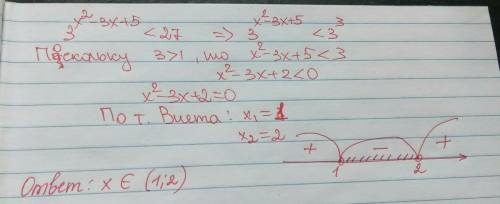 3^{x²-3x+5} < 27 => 3^{x²-3x+5} < 3³
Поскольку 3>1, то x²-3x+5<3
x²-3x+2<0
x²-3x+2=0
По т. Виета: x₁=1
x₂=2
+ − +
1 2
Ответ: x ∈ (1;2)